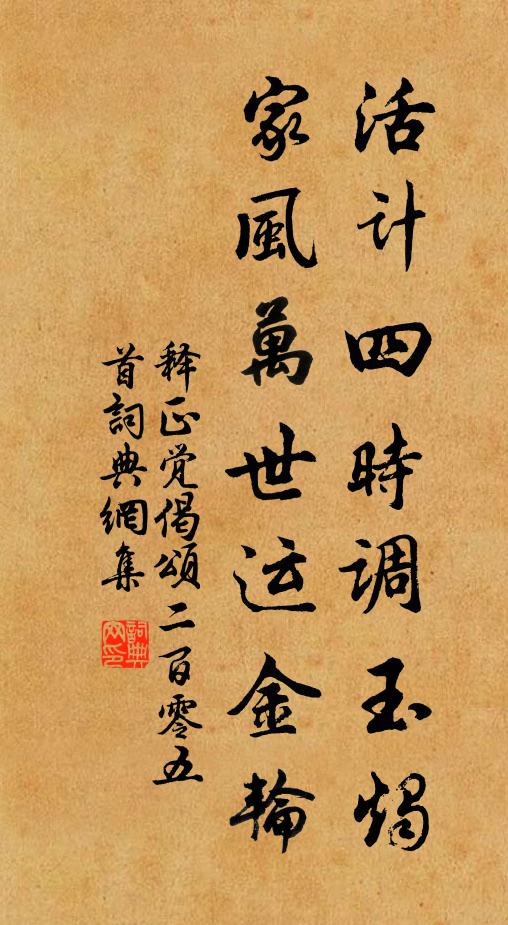 活计四時调玉燭
家風萬世运金輪
释正觉偈頌二百零五
首詞典網集
詞典網印